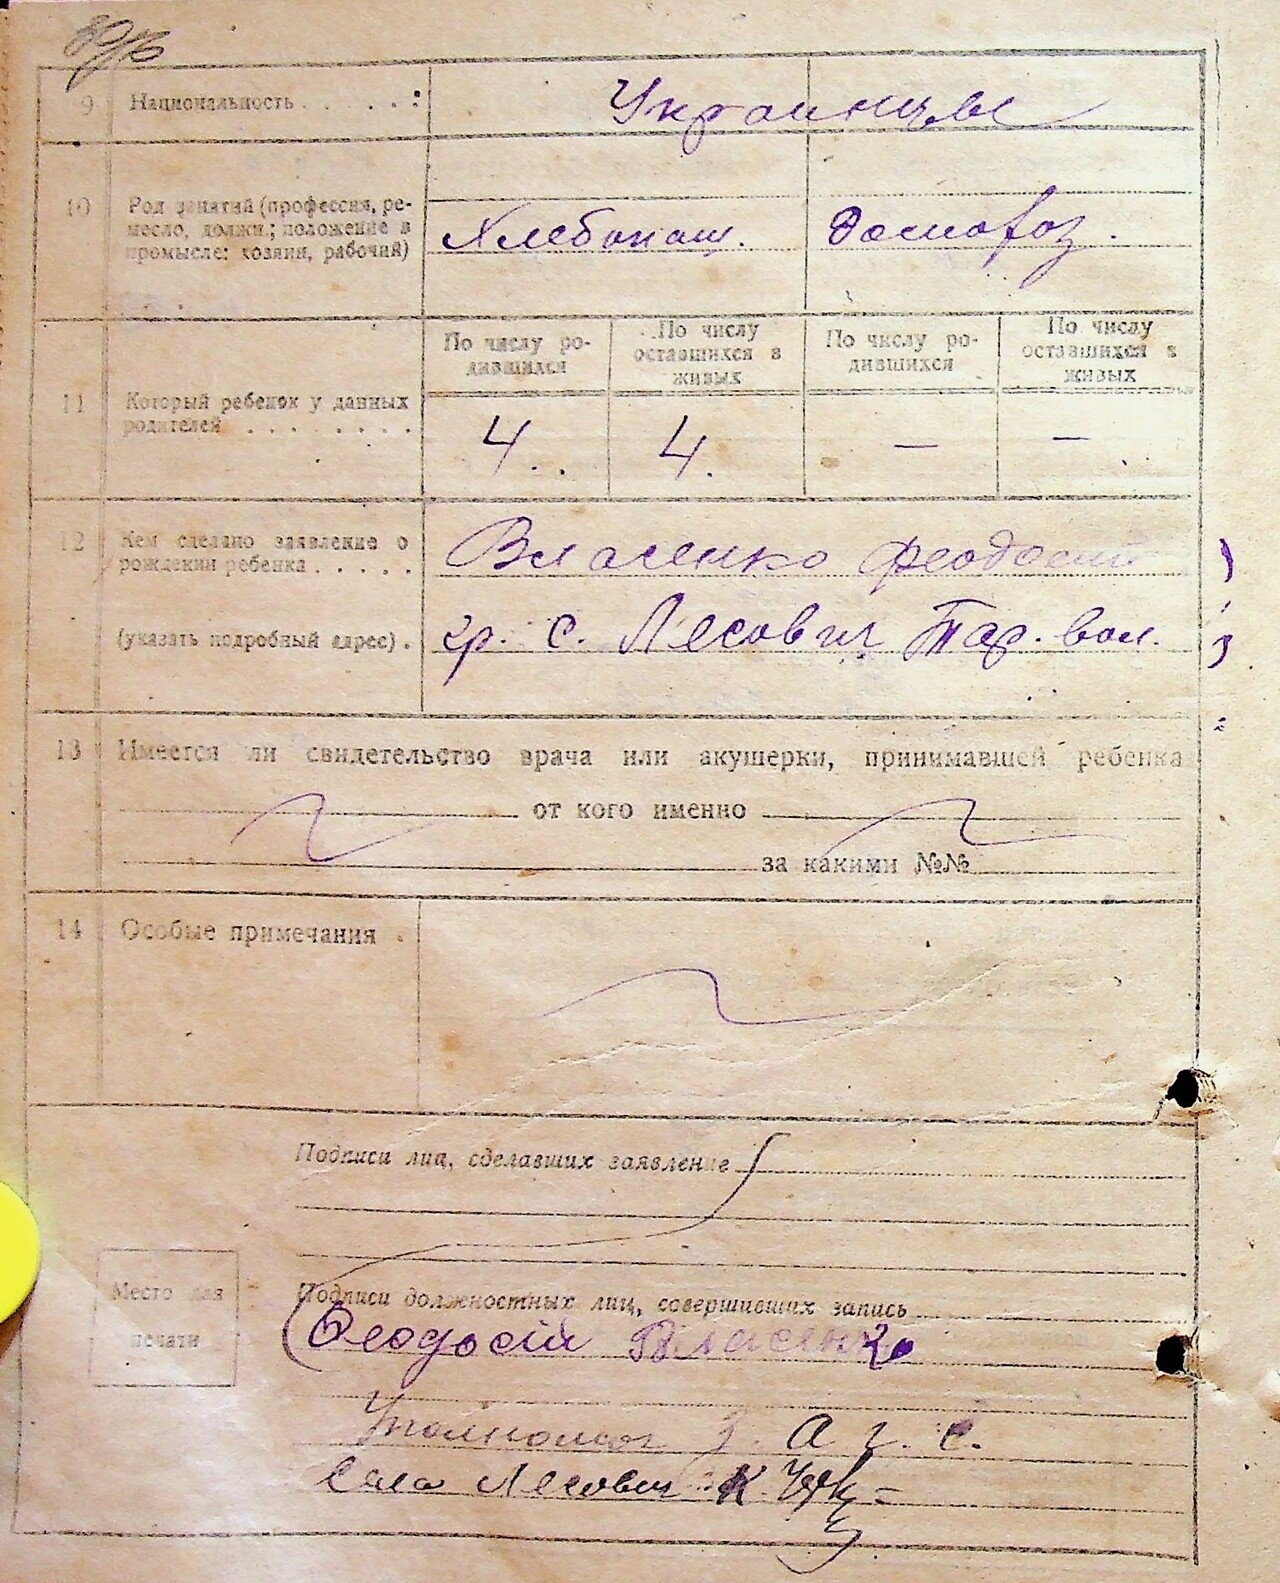 9 Национальность . . . . . : Украинцы
10 Род занятий (профессия, ре-
месло, должн.; положение в
промысле: хозяин, рабочий)
Хлебопаш. Домохоз.
По числу ро-
дившихся
По числу
оставшихся в
живых
По числу ро-
дившихся
По числу
оставшихся в
живых
11 Который ребенок у данных
родителей . . . . . . . .
4. 4. — —
12 Кем сделано заявление о
рождении ребенка . . . . .
(указать подробный адрес) .
Власенко Феодосий
гр. с. Лесович Тар. вол.
13 Имеется ли свидетельство врача или акушерки, принимавшей ребенка
от кого именно
за какими №№
14 Особые примечания .
Подписи лиц, сделавших заявление
Место для
печати
Подписи должностных лиц, совершивших запись
Феодосій Власенко
З. А. Г. С.
Села Лесович К.